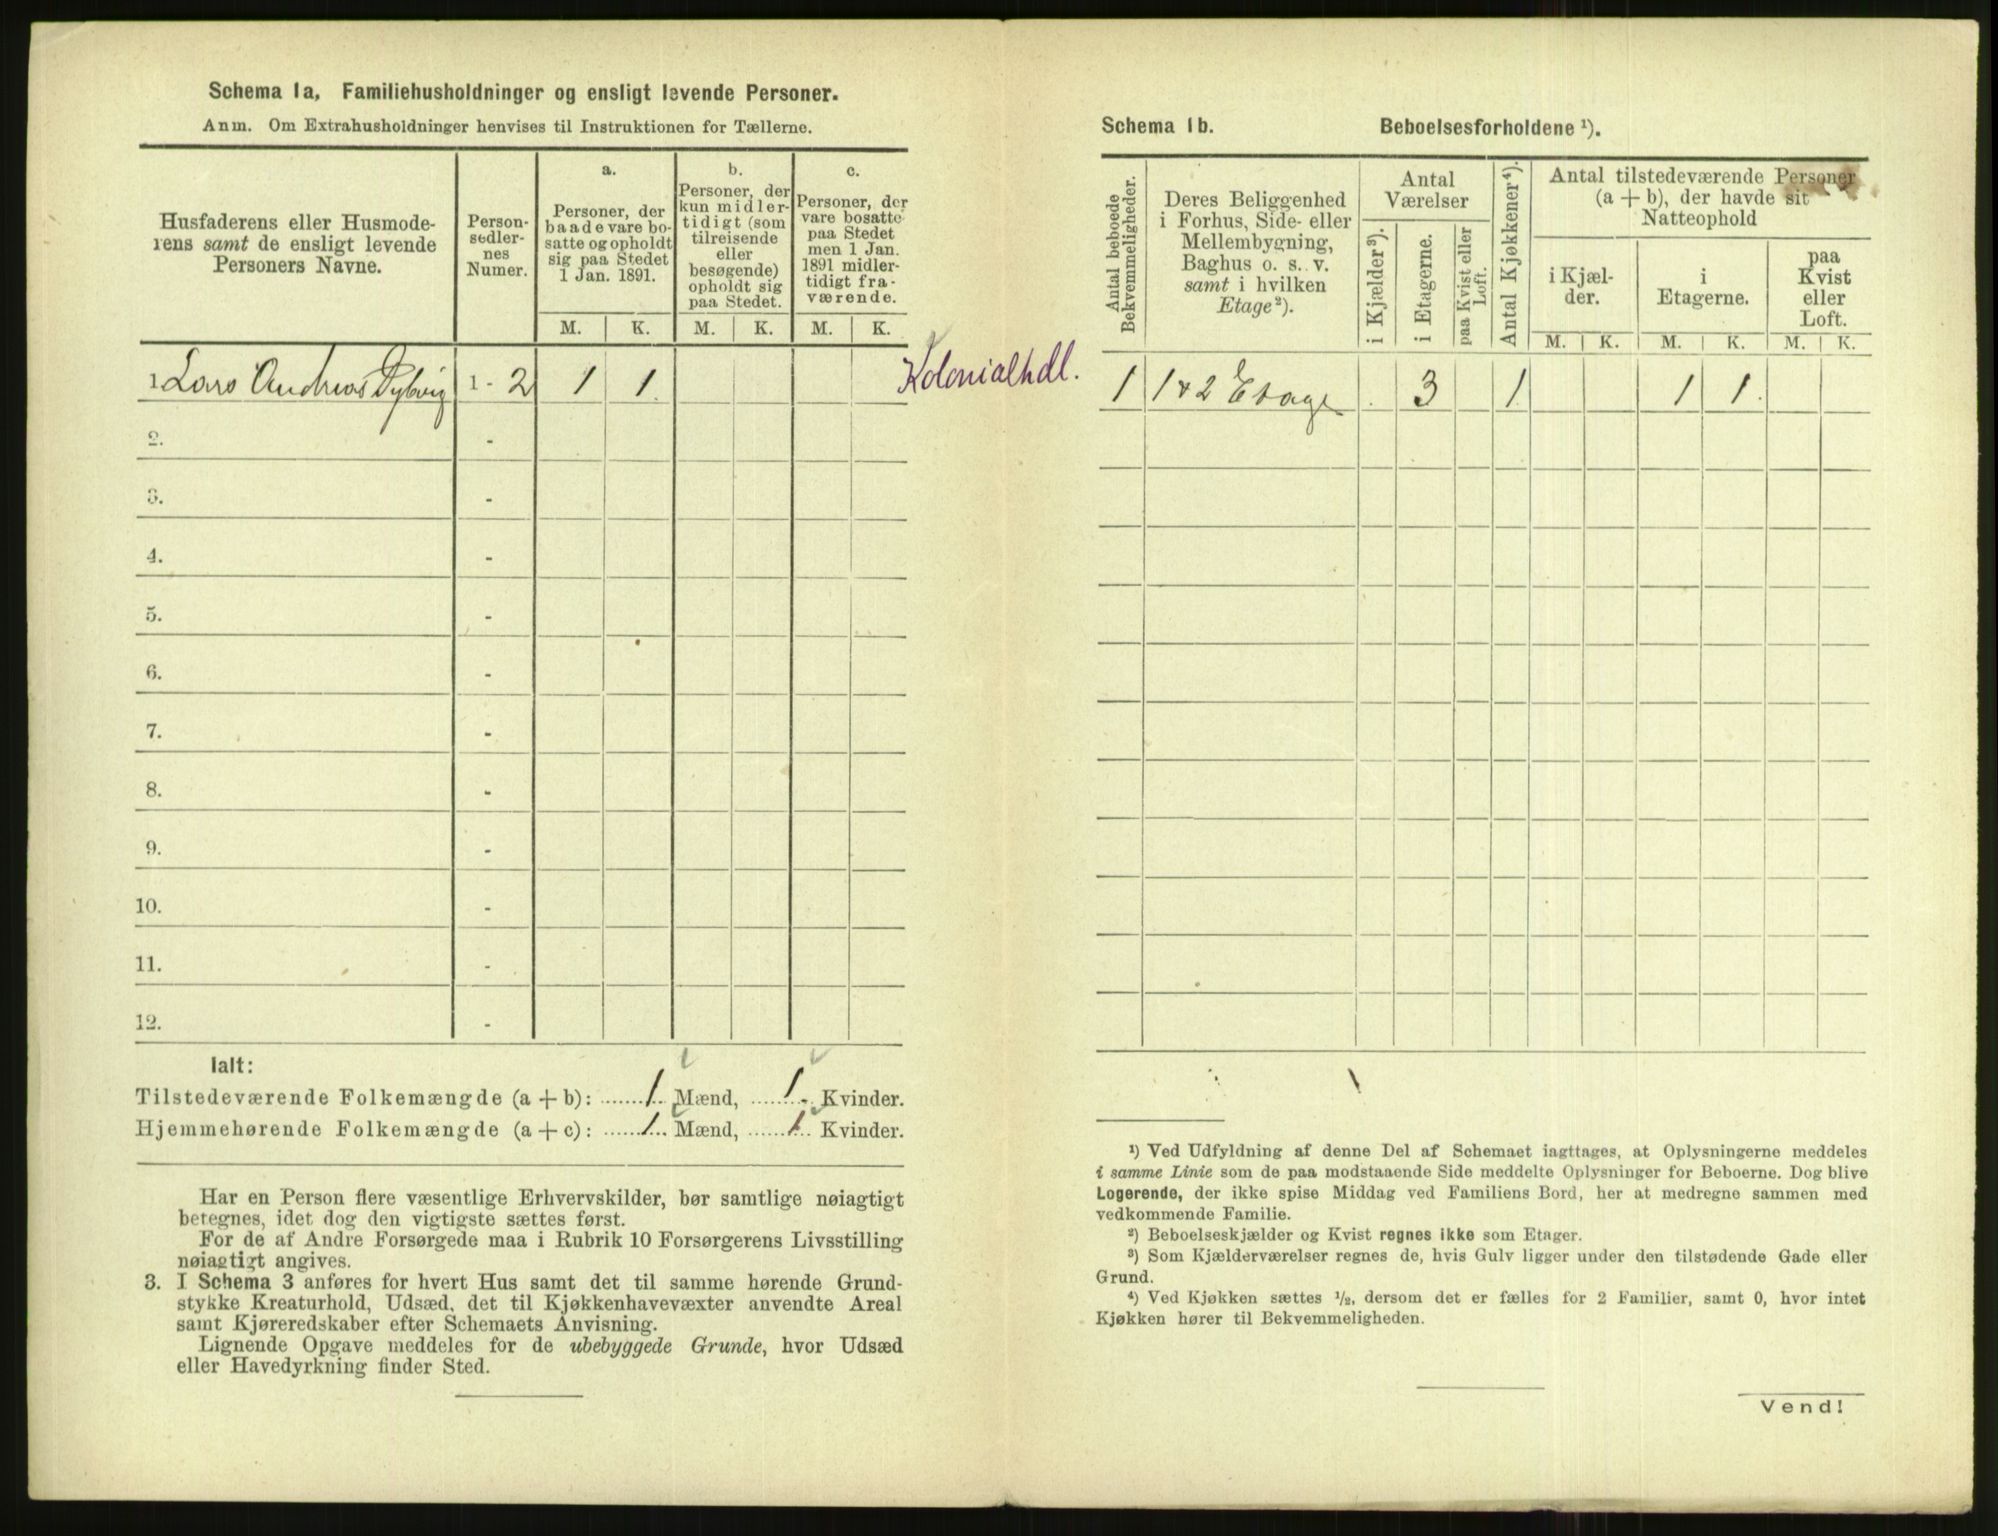 Schema 1a, Familiehusholdninger og ensligt levende Personer.
Anm. Om Extrahusholdninger henvises til Instruktionen for Tællerne.
Husfaderens eller Husmode-
rens samt de ensligt levende
Personers Navne.
Person-
sedler-
nes
Numer.
a.
Personer, der
baade vare bo-
satte og opholdt
sig paa Stedet
1 Jan. 1891.
b.
Personer, der
kun midler-
tidigt (som
tilreisende
eller
besøgende)
opholdt sig
paa Stedet.
c.
Personer, der
vare bosatte
paa Stedet
men 1 Jan.
1891 midler-
tidigt fra-
værende.
M. K. M. K. M. K.
1 Lars Andreas Dybvig 1 - 2 1 1 Kolonialhdl.
2. -
3. -
4. -
5. -
6. -
7. -
8. -
9. -
10. -
11. -
12. -
Ialt:
Tilstedeværende Folkemængde (a + b): 1 Mænd, 1 Kvinder.
Hjemmehørende Folkemængde (a + c): 1 Mænd, 1 Kvinder.
Har en Person flere væsentlige Erhvervskilder, bør samtlige nøiagtigt
betegnes, idet dog den vigtigste sættes først.
For de af Andre Forsørgede maa i Rubrik 10 Forsørgerens Livsstilling
nøiagtigt angives.
3. I Schema 3 anføres for hvert Hus samt det til samme hørende Grund-
stykke Kreaturhold, Udsæd, det til Kjøkkenhavevæxter anvendte Areal
samt Kjøreredskaber efter Schemaets Anvisning.
Lignende Opgave meddeles for de ubebyggede Grunde, hvor Udsæd
eller Havedyrkning finder Sted.
Schema 1b. Beboelsesforholdene ¹).
Antal beboede
Bekvemmeligheder.
Deres Beliggenhed
i Forhus, Side- eller
Mellembygning,
Baghus o. s. v.
samt i hvilken
Etage²).
Antal
Værelser
i Kjælder³).
i Etagerne.
paa Kvist eller
Loft.
Antal Kjøkkener⁴).
Antal tilstedeværende Personer
(a + b), der havde sit
Natteophold
i Kjæl-
der.
i
Etagerne.
paa
Kvist
eller
Loft.
M. K. M. K. M. K.
1 1 & 2 Etage 3 1 1 1
¹) Ved Udfyldning af denne Del af Schemaet iagttages, at Oplysningerne meddeles
i samme Linie som de paa modstaaende Side meddelte Oplysninger for Beboerne. Dog blive
Logerende, der ikke spise Middag ved Familiens Bord, her at medregne sammen med
vedkommende Familie.
²) Beboelseskjælder og Kvist regnes ikke som Etager.
³) Som Kjælderværelser regnes de, hvis Gulv ligger under den tilstødende Gade eller
Grund.
⁴) Ved Kjøkken sættes ½, dersom det er fælles for 2 Familier, samt 0, hvor intet
Kjøkken hører til Bekvemmeligheden.
Vend!